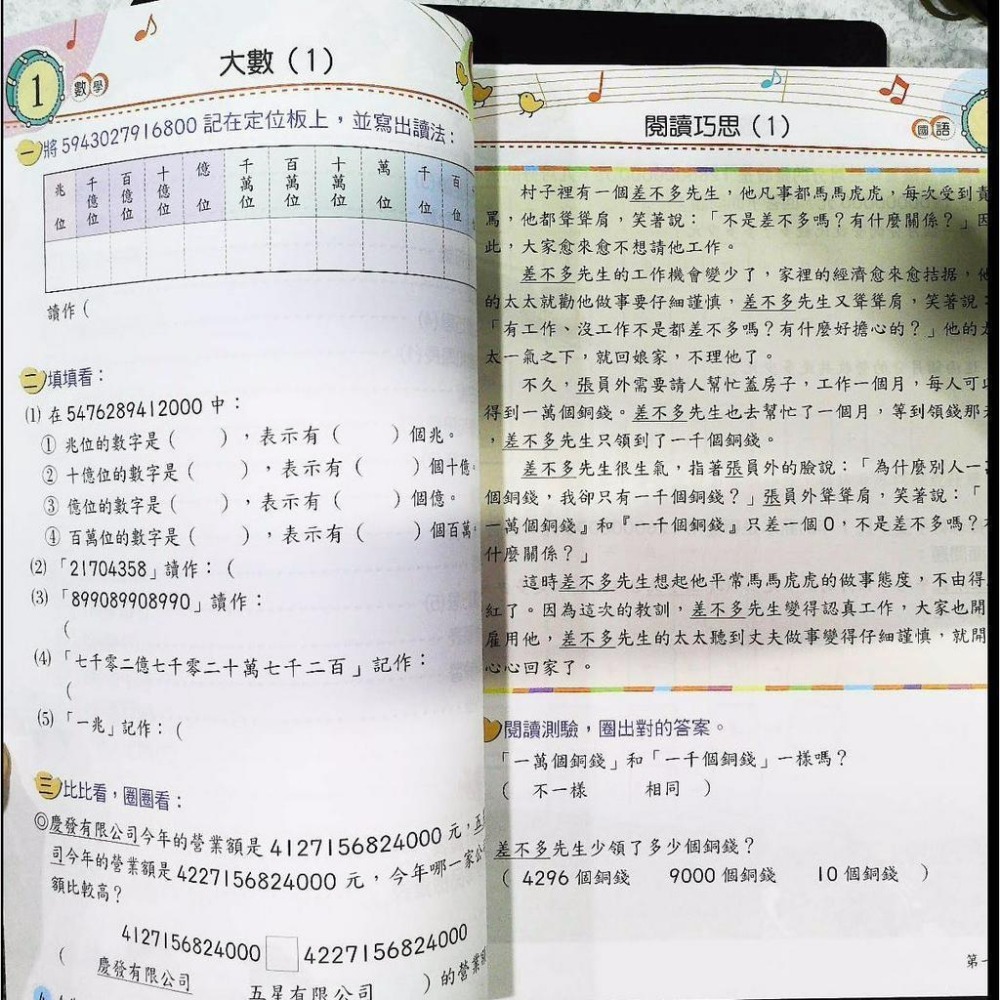 1
數學
大數（1）
一 將5943027916800記在定位板上，並寫出讀法：
兆位 千億位 百億位 十億位 億位 千萬位 百萬位 十萬位 萬位 千位 百
讀作（
二 填填看：
⑴ 在5476289412000中：
① 兆位的數字是（　　），表示有（　　）個兆。
② 十億位的數字是（　　），表示有（　　）個十億
③ 億位的數字是（　　），表示有（　　）個億。
④ 百萬位的數字是（　　），表示有（　　）個百萬
⑵ 「21704358」讀作：（
⑶ 「899089908990」讀作：
（
⑷ 「七千零二億七千零二十萬七千二百」記作：
（
⑸ 「一兆」記作：（
三 比比看，圈圈看：
◎慶發有限公司今年的營業額是4127156824000元，五
司今年的營業額是4227156824000元，今年哪一家公
額比較高？
4127156824000 □ 4227156824000
（ 慶發有限公司 五星有限公司 ）的營業
閱讀巧思（1）
國語
村子裡有一個差不多先生，他凡事都馬馬虎虎，每次受到責
罵，他都聳聳肩，笑著說：「不是差不多嗎？有什麼關係？」因
此，大家愈來愈不想請他工作。
差不多先生的工作機會變少了，家裡的經濟愈來愈拮据，他
的太太就勸他做事要仔細謹慎，差不多先生又聳聳肩，笑著說：
「有工作、沒工作不是都差不多嗎？有什麼好擔心的？」他的太
太一氣之下，就回娘家，不理他了。
不久，張員外需要請人幫忙蓋房子，工作一個月，每人可以
得到一萬個銅錢。差不多先生也去幫忙了一個月，等到領錢那
，差不多先生只領到了一千個銅錢。
差不多先生很生氣，指著張員外的臉說：「為什麼別人一
個銅錢，我卻只有一千個銅錢？」張員外聳聳肩，笑著說：「
一萬個銅錢』和『一千個銅錢』只差一個0，不是差不多嗎？
什麼關係？」
這時差不多先生想起他平常馬馬虎虎的做事態度，不由得
紅了。因為這次的教訓，差不多先生變得認真工作，大家也開
雇用他，差不多先生的太太聽到丈夫做事變得仔細謹慎，就開
心心回家了。
閱讀測驗，圈出對的答案。
「一萬個銅錢」和「一千個銅錢」一樣嗎？
（　不一樣　　相同　）
差不多先生少領了多少個銅錢？
（　4296個銅錢　　9000個銅錢　　10個銅錢　）
第一